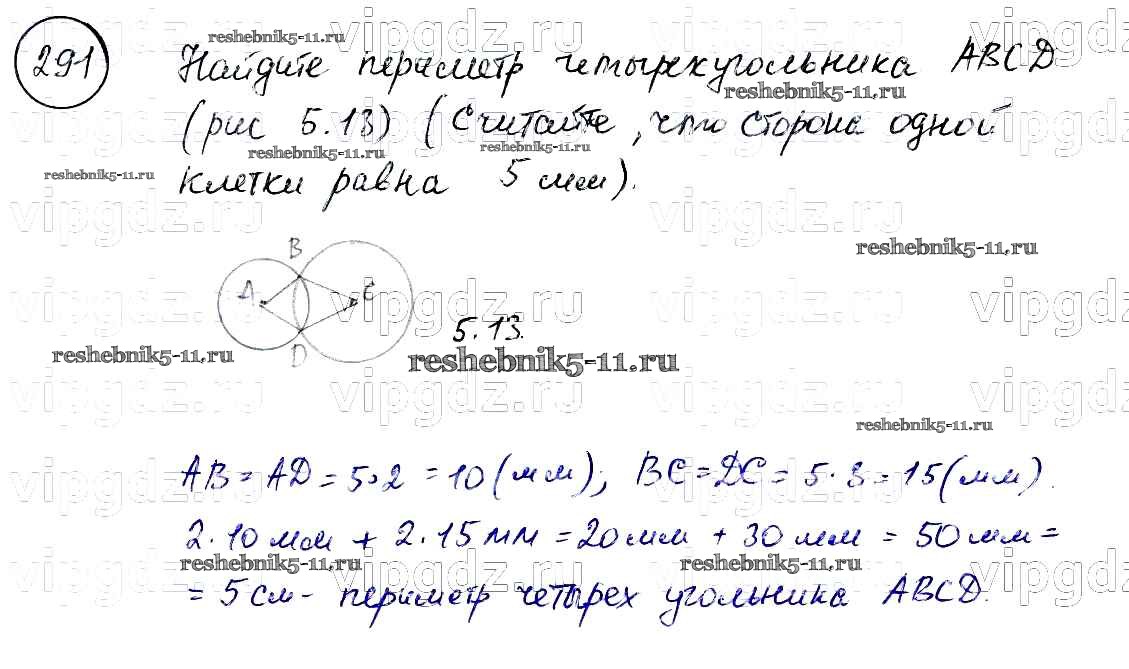 291
Найдите периметр четырехугольника ABCD
(рис 5.13) (Считайте, что сторона одной
клетки равна 5 мм).
B
A
C
D
5.13.
AB = AD = 5·2 = 10 (мм); BC = DC = 5·3 = 15 (мм).
2·10 мм + 2·15 мм = 20 мм + 30 мм = 50 мм =
= 5 см - периметр четырех угольника ABCD.
reshebnik5-11.ru
vipgdz.ru